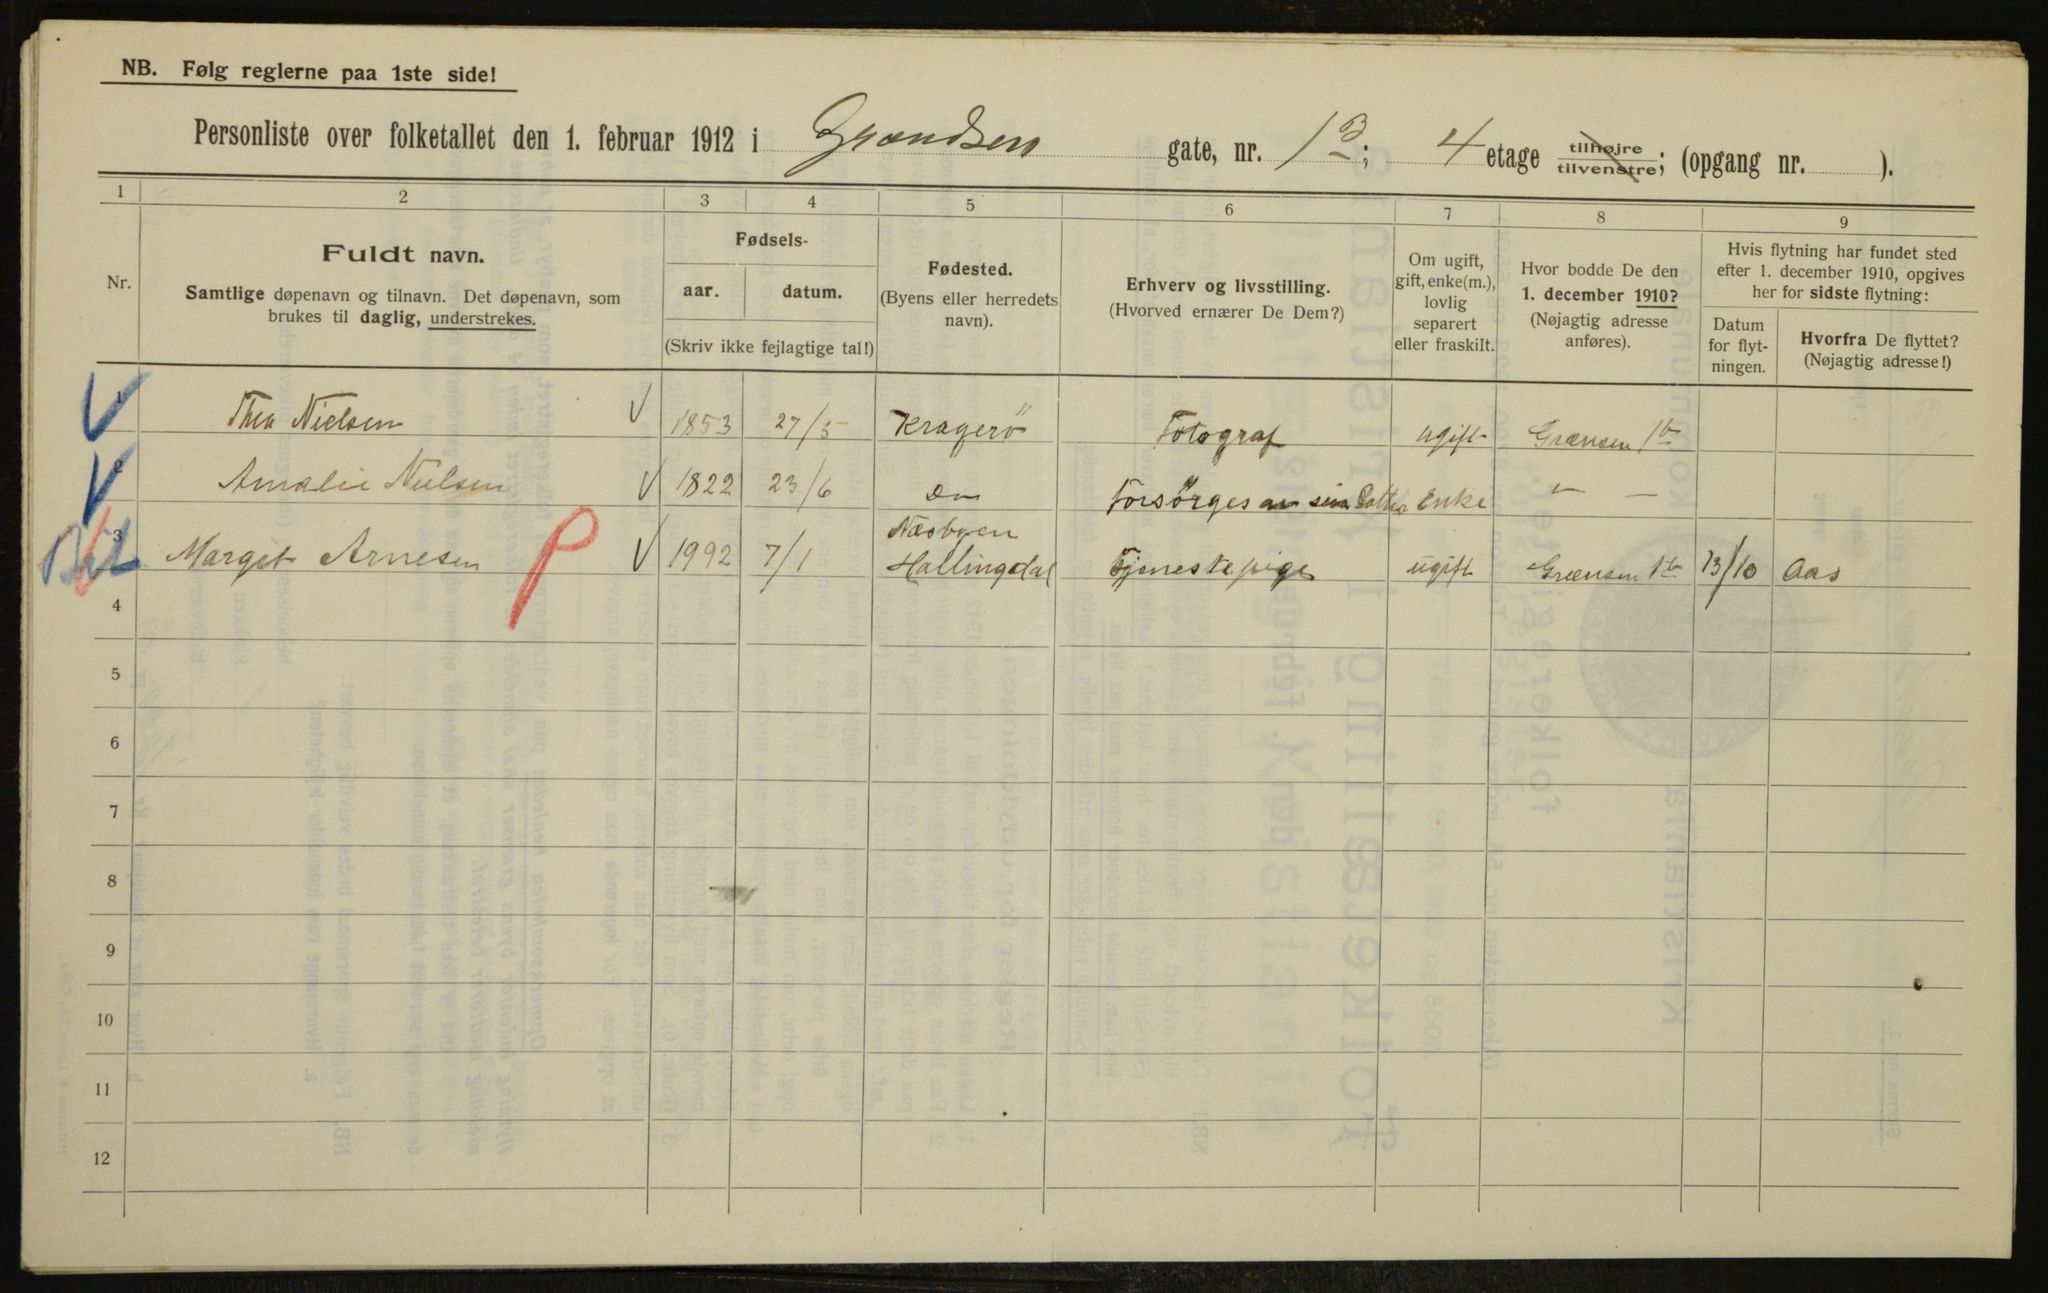 NB. Følg reglerne paa 1ste side!
Personliste over folketallet den 1. februar 1912 i Grændsen gate, nr. 1B; 4 etage tilhøjre tilvenstre; (opgang nr. ).
1 2 3 4 5 6 7 8 9
Nr.
Fuldt navn.
Samtlige døpenavn og tilnavn. Det døpenavn, som
brukes til daglig, understrekes.
Fødsels-
aar. datum.
(Skriv ikke fejlagtige tal!)
Fødested.
(Byens eller herredets
navn).
Erhverv og livsstilling.
(Hvorved ernærer De Dem?)
Om ugift,
gift, enke(m.),
lovlig
separert
eller fraskilt.
Hvor bodde De den
1. december 1910?
(Nøjagtig adresse
anføres).
Hvis flytning har fundet sted
efter 1. december 1910, opgives
her for sidste flytning:
Datum
for flyt-
ningen.
Hvorfra De flyttet?
(Nøjagtig adresse!)
1 Thea Nielsen V 1853 27/5 Kragerö Fotograf ugift Grænsen 1b
2 Amalie Nielsen V 1822 23/6 Do Forsörges av sin Datter Enke " —
3 Margit Arnesen P V 1992 7/1 Næsbyen
Hallingdal Tjenestepige ugift Grænsen 1b 13/10 Aas
4
5
6
7
8
9
10
11
12